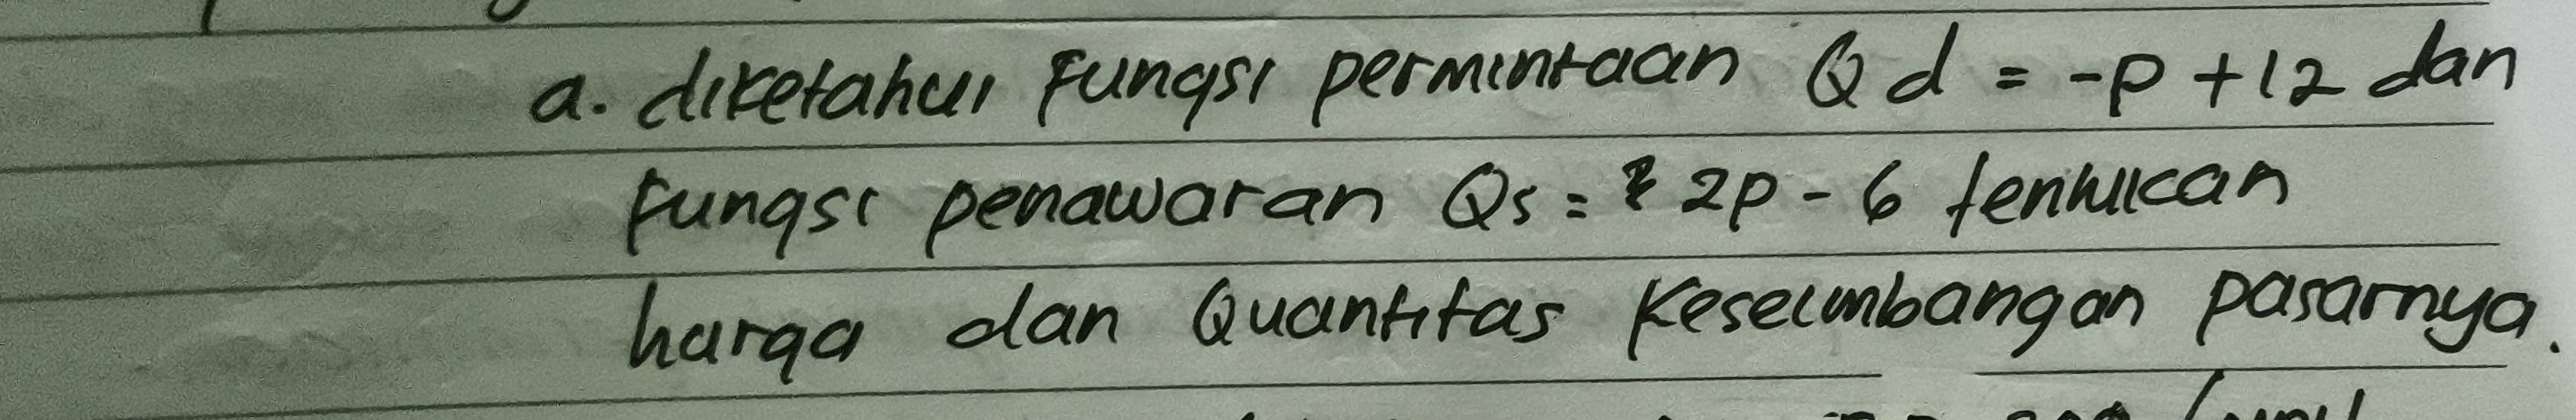 a. diketahui fungsi permintaan Qd = -p +12 dan
fungsi penawaran Qs = 2p - 6 tentukan
harga dan Quantitas Keseimbangan pasarnya.